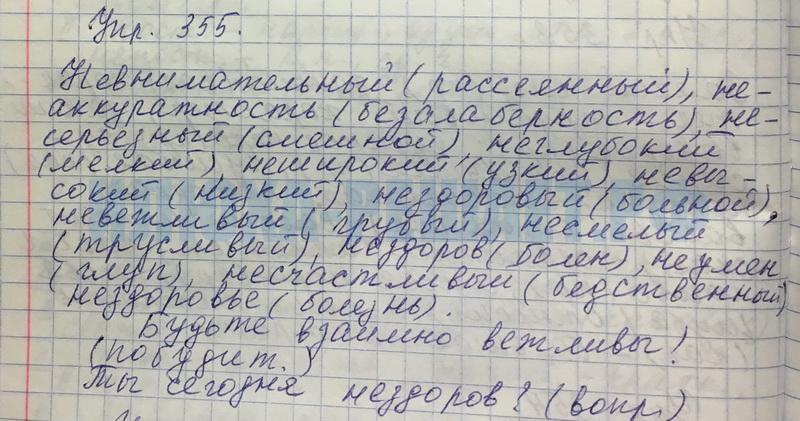 Упр. 355.
Невнимательный (рассеянный), не-
аккуратность (безалаберность), не-
серьезный (смешной), неглубокий
(мелкий), неширокий (узкий) невы-
сокий (низкий), нездоровый (больной),
невежливый (грубый), несмелый
(трусливый), нездоров (болен), неумен
(глуп), несчастливый (бедственный)
нездоровье (болезнь).
Будьте взаимно вежливы!
(побудит.)
Ты сегодня нездоров? (вопр.)